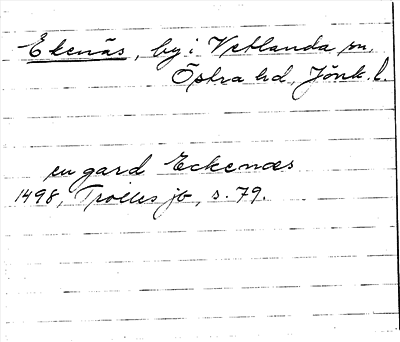 Ekenäs, by i Vetlanda sn,
Östra hd., Jönk. l.
en gard Eckenæs
1498, Trolles jb, s. 79.